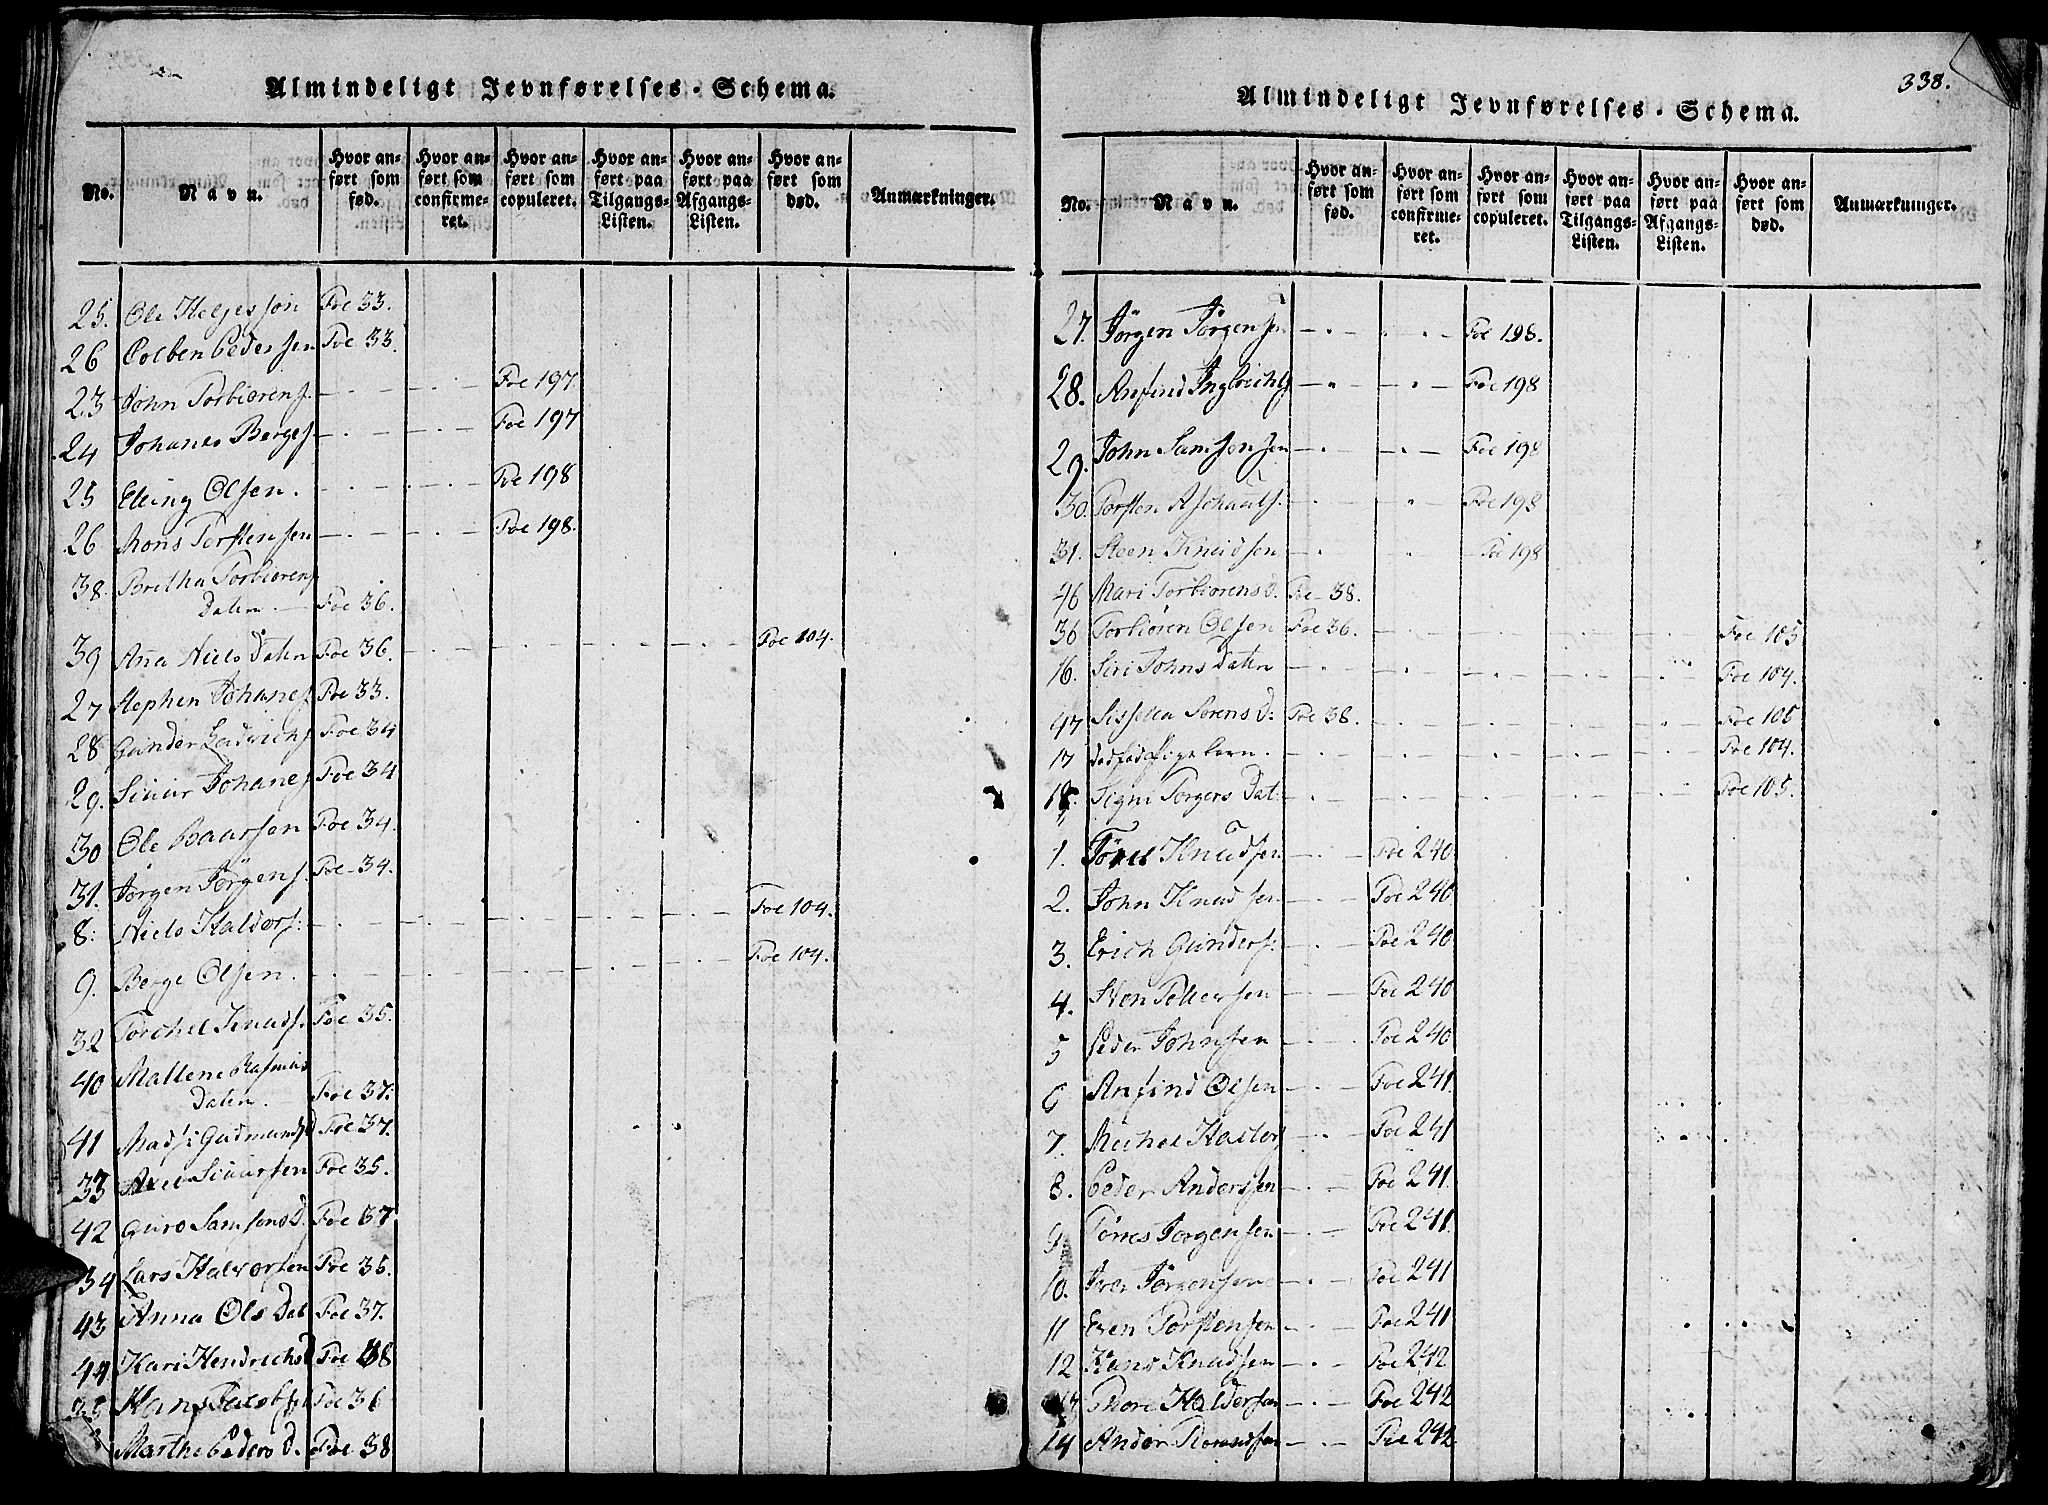 Almindeligt Jevnførelses-Schema.
No.
Navn.
Hvor anført som fød.
Hvor anført som confirmeret.
Hvor anført som copuleret.
Hvor anført paa Tilgangs-Listen.
Hvor anført paa Afgangs-Listen.
Hvor anført som død.
Anmærkninger.
25. Ole Helgesson Foe 33.
26 Colben Pedersen Foe 33.
23 John Torbiørens. Foe 197
24 Johanes Berges Foe 197
25 Elling Olsen. Foe 198
26 Mons Torstensen Foe 198.
38. Bretha Torbiørens
Daten Foe 36.
39 Aña Niels Daten Foe 36. Foe 104.
27 Stephen Johanes Foe 33.
28 Gunder Foe 34
29. Siuur Johanes Foe 34
30 Ole Baarsen Foe 34.
31. Jørgen Jørgens. Foe 34.
8. Niels Haldors: Foe 104.
9. Berge Olsen. Foe 104.
32 Torchel Knuds. Foe 35.
40 Mallene Rasmus
Daten. Foe 37.
41 Mads: Gudmunds D Foe 37.
33 Axel Siuursen Foe 35.
42 Guro Samsons D. Foe 37
34 Lars Halvorsen Foe 36.
43 Anna Ols Dat Foe 37.
44 Kari Hendrichs D Foe 38
Hans Foe 36
Marthe Peders D. Foe 38
338.
Almindeligt Jevnførelses-Schema.
No.
Navn.
Hvor anført som fød.
Hvor anført som confirmeret.
Hvor anført som copuleret.
Hvor anført paa Tilgangs-Listen.
Hvor anført paa Afgangs-Listen.
Hvor anført som død.
Anmærkninger.
27. Jörgen Jörgensen Foe 198.
28. Anfind Foe 198
29. John Samsonsen Foe 198
30. Torsten Foe 198
31. Steen Knudsen Foe 198
46 Mari Torbiørens D. Foe 38.
36 Torbiören Olsen Foe 36. Foe 105
16. Siri Johns Daten Foe 104.
47 Sissela Sorens D: Foe 38. Foe 105
17 dødfød Pigebarn. Foe 104.
18. Signi Torgers Dat: Foe 105.
1. Törres Knudsen Foe 240
2. John Knudsen Foe 240
3. Erich Gunders: Foe 240
4. Sven Pettersen Foe 240
5 Peder Johnsen Foe 240
6 Anfind Olsen Foe 241
7. Michel Haldors Foe 241
8. Peder Andersen Foe 241
9. Törres Jorgensen Foe 241
10. Iver Jörgensen Foe 241
11 Even Torstensen Foe 241
12 Hans Knudsen Foe 242
Thore Haldorsen Foe 242
14 Ander Foe 242